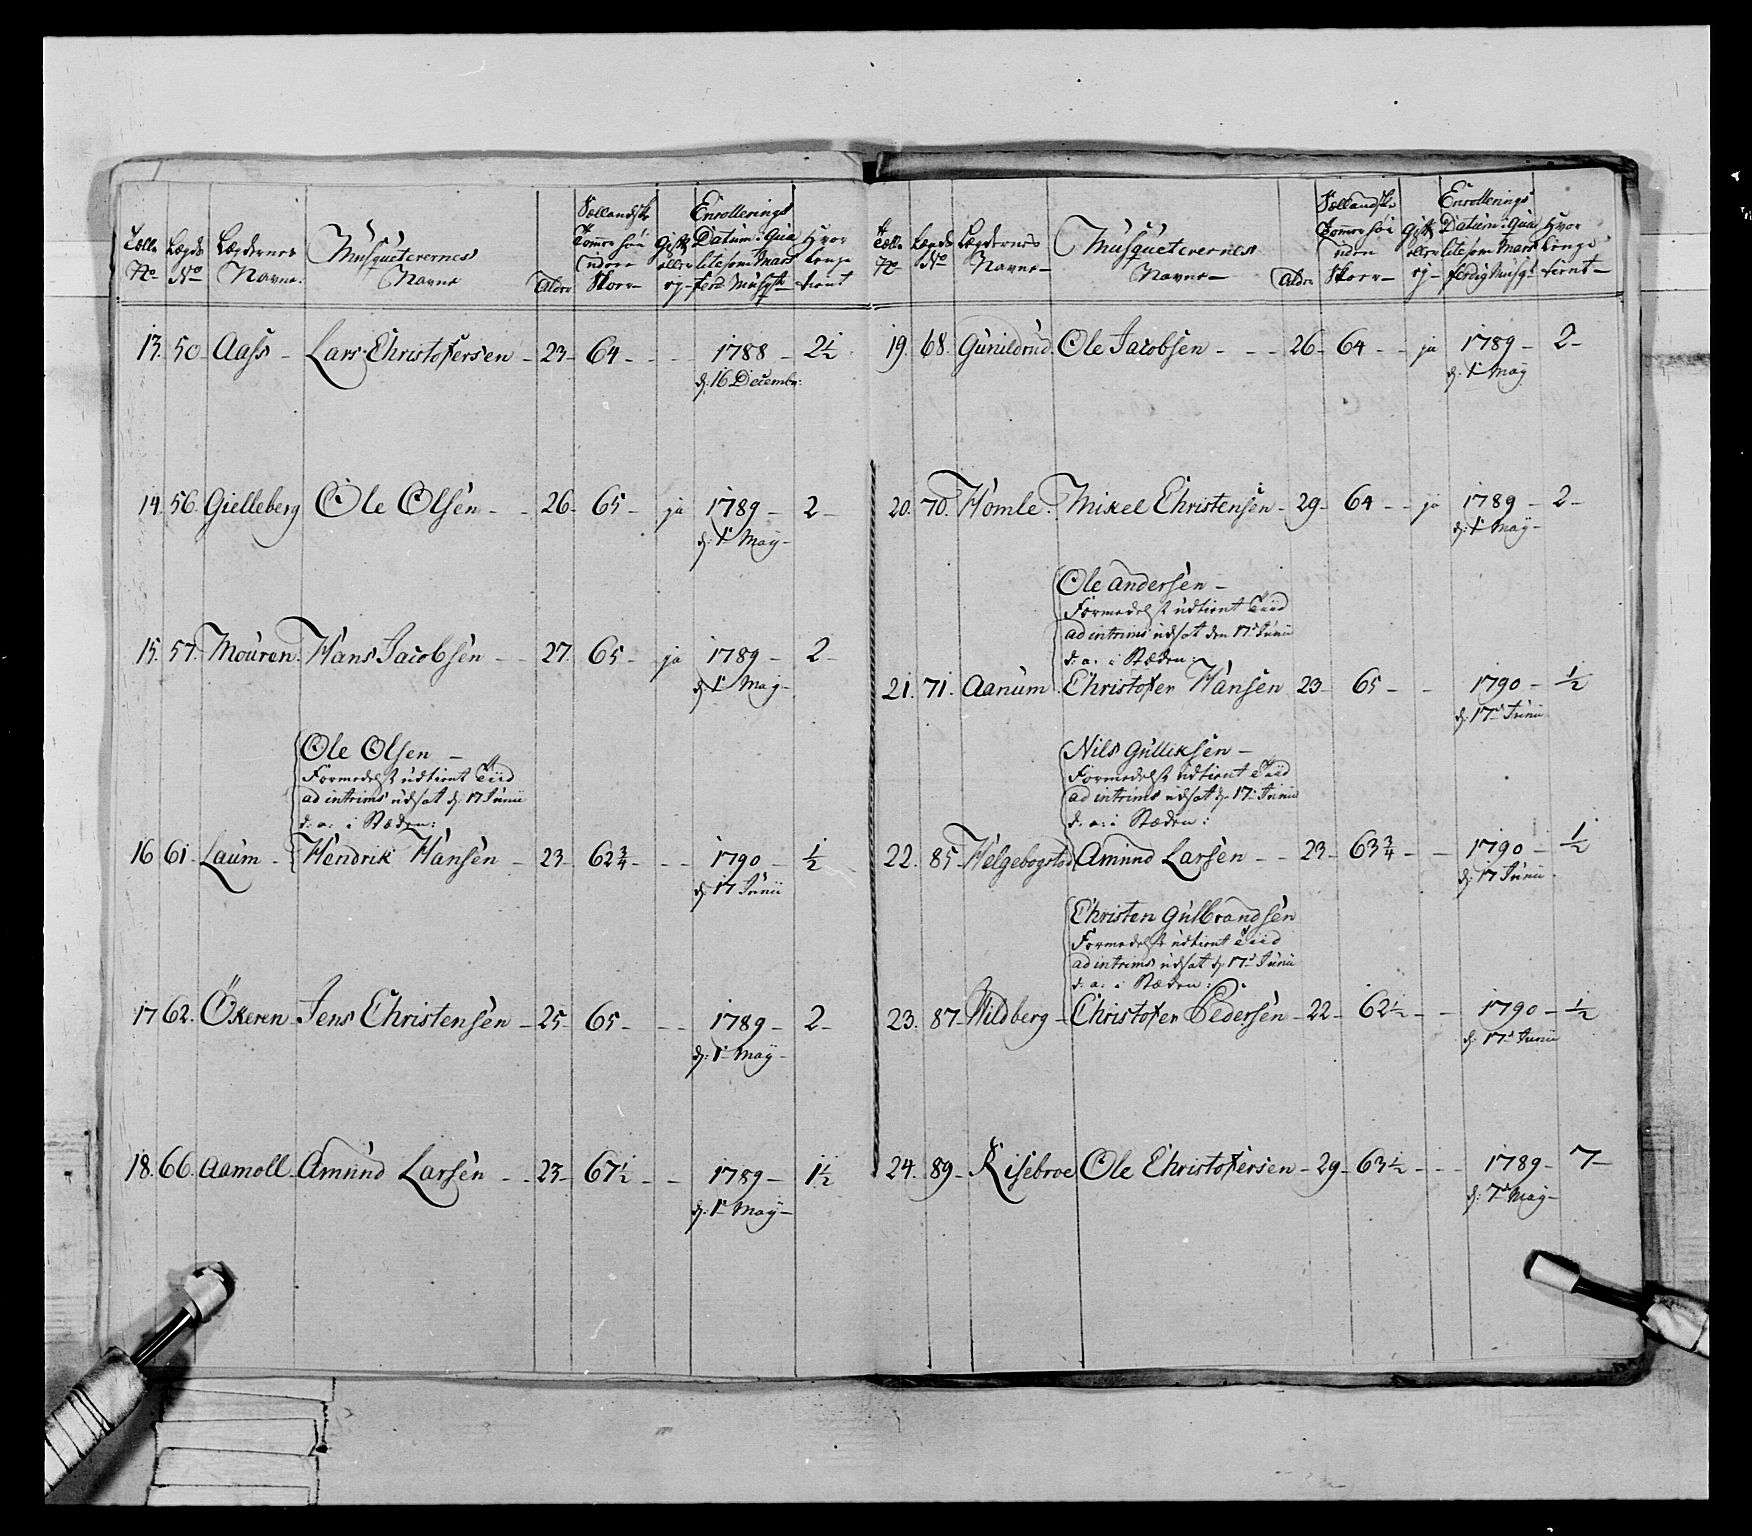 Tælle No
Lægds No
Lægdernes Navne.
Musqueterernes Navne
Alder
Sællandsk Tomme høi uden Skoe
Gift eller ej
Enrollerings Datum: qua lite som Mars ferd: Musqt
Hvor længe tient
13. 50 Aass - Lars Christofersen - 23 - 64 - - - 1788 - 2½
d: 16 Decembr:
14. 56. Gielleberg Ole Olsen - - 26 - 65 - ja 1789 - 2 -
d: 1t May -
15. 57. Mouren. Hans Jacobsen - - 27. 65 - ja 1789 - 2 -
d: 1t May -
Ole Olsen -
Formedelst udtient Tiid
ad intrims udsat d: 17 Junii
d: a: i Stæden:
16 61. Laum - Hendrik Hansen - 23 - 62¾ - - - 1790 - ½
d: 17 Junii
17 62. Økeren - Jens Christensen - 25 - 65 - - - 1789 - 2 -
d: 1t May -
18. 66. Aamoll - Amund Larsen - - 23 - 67½ - - 1789 - 1½
d: 1t May -
Tælle No
Lægds No
Lægdernes Navne -
Musqueterernes Navne -
Alder
Sællandsk Tomme høi uden Skoe -
Gift eller ej -
Enrollerings Datum: qua lite som Mars ferdig Musqt
Hvor længe tient -
19. 68. Gunildrud Ole Jacobsen - - - 26 - 64 - - ja 1789 - 2 -
d: 1t May
20. 70. Homle - Mikel Christensen - 29 - 64 - - ja 1789 - 2 -
d: 1t May -
Ole Andersen -
Formedelst udtient Tiid
ad intrims udsat den 17d Junii
d: a: i Stæden:
21. 71. Aanum. Christofer Hansen 23 - 65 - - 1790 - ½
d: 17d Junii
Nils Gulliksen -
Formedelst udtient Tiid
ad intrims udsat d: 17d Junii
d: a: i Stæden:
22. 85 - Helgebogstad Amund Larsen - - 23 - 63¾ - - 1790 - ½
d: 17 Junii
Christen Gulbrandsen
Formedelst udtient Tiid
ad intrims udsat d: 17d Junii
d: a: i Stæden:
23. 87 - Wildberg - Christofer Pedersen - 22 - 62½ - - 1790 - ½
d: 17d Junii
24. 89 - Risebroe Ole Christofersen - 29 - 63½ - - - 1789 - 7 -
d: 7d May -